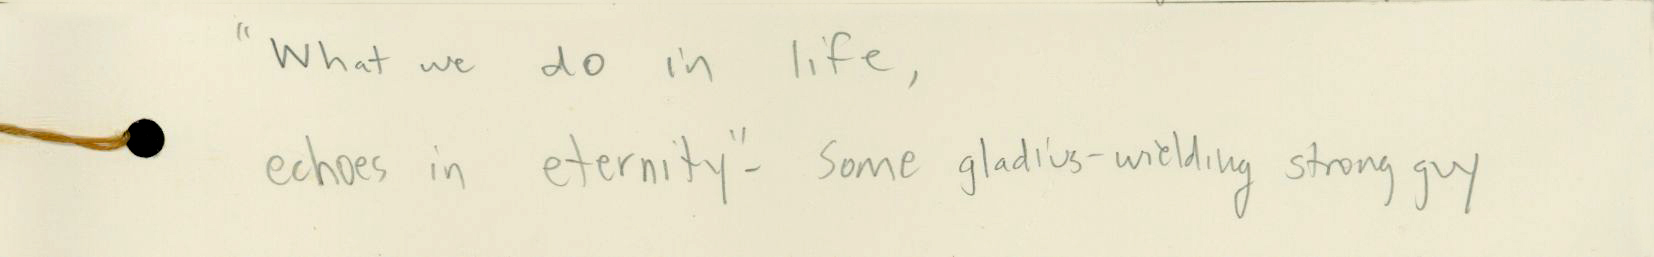 "What we do in life,
echoes in eternity"- Some gladius-wielding strong guy